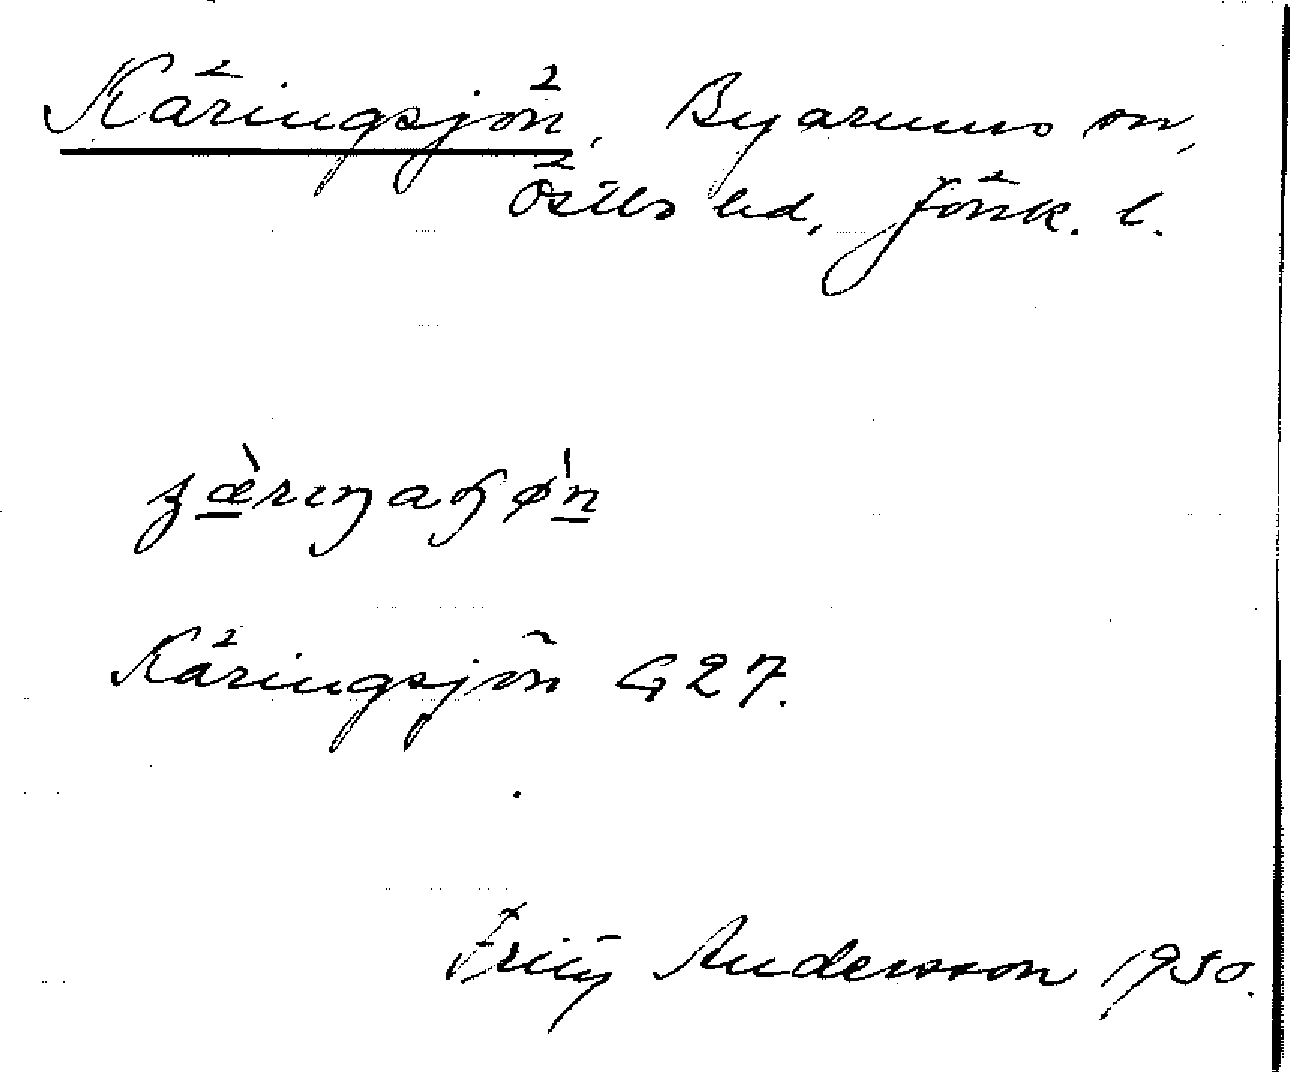 Käringsjön, Byarums sn,
Östbo hd, Jönk. l.
Käringsjön G 27.
Fritz Andersson 1930.